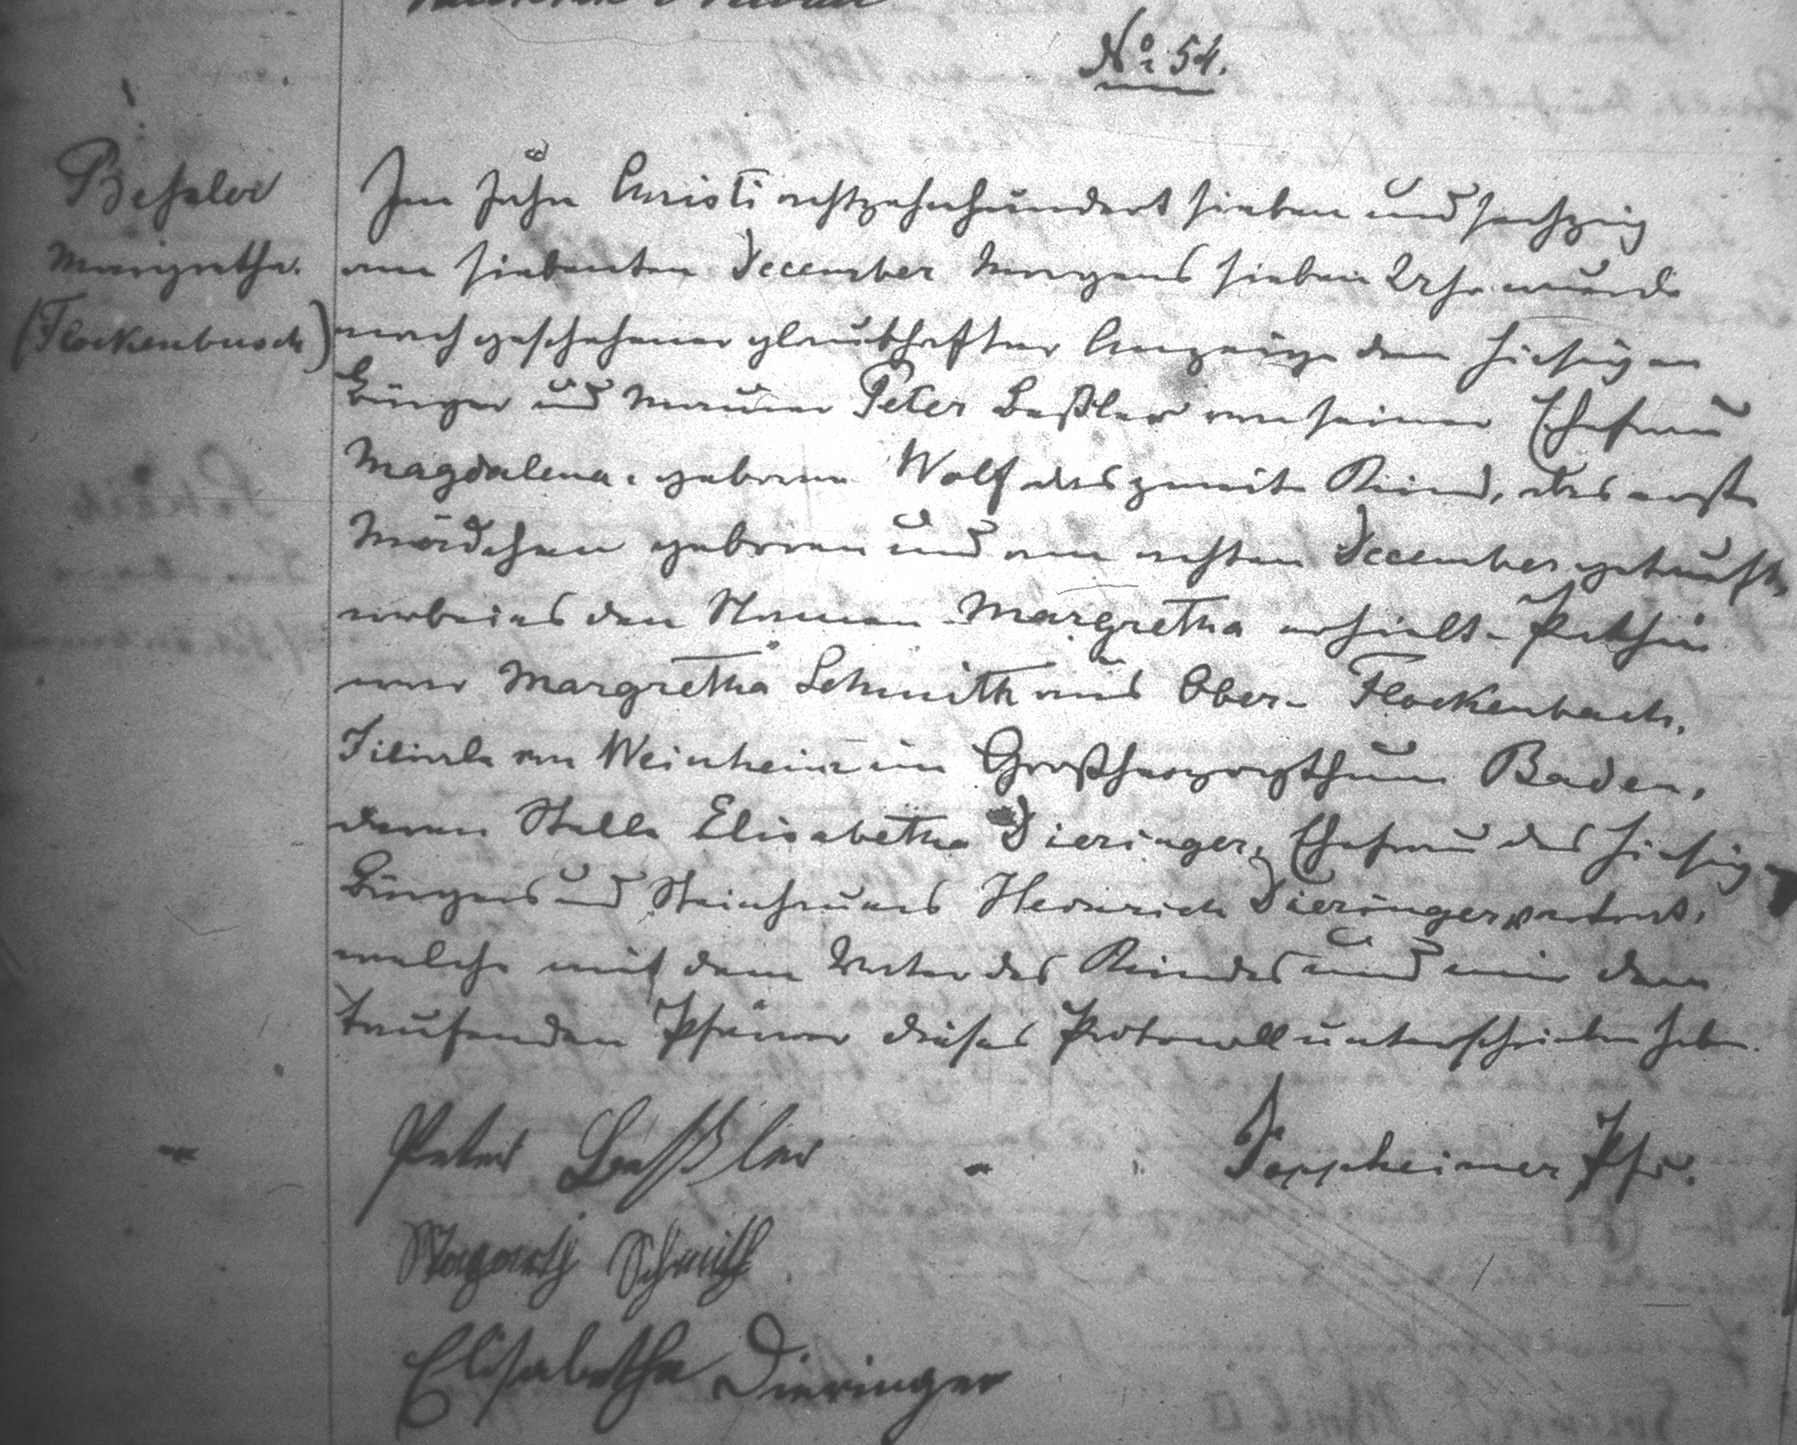 No 54.
Beßler
Margretha.
(Flockenbach)
Im Jahr Christi achtzehnhundert sieben und sechzig
am siebenten December Morgens sieben Uhr wurde
nach geschehener glaubhafter Anzeige dem hiesigen
Bürger und Maurer Peter Beßler von seiner Ehefrau
Magdalena, geborne Wolf das zweite Kind, das erste
Mädchen geboren und am achten December getauft,
wobei es den Namen Margretha erhielt. Pathin
war Margretha Schmith aus Ober-Flockenbach,
Filiale von Weinheim im Großherzogthum Baden,
deren Stelle Elisabetha Dieringer, Ehefrau des hiesigen
Bürgers und Steinhauers Heinrich Dieringer vertrat,
welche mit dem Vater des Kindes und mir dem
taufenden Pfarrer dieses Protocoll unterschrieben haben.
Peter Beßler
Pfr.
Margareth Schmith
Elisabetha Dieringer